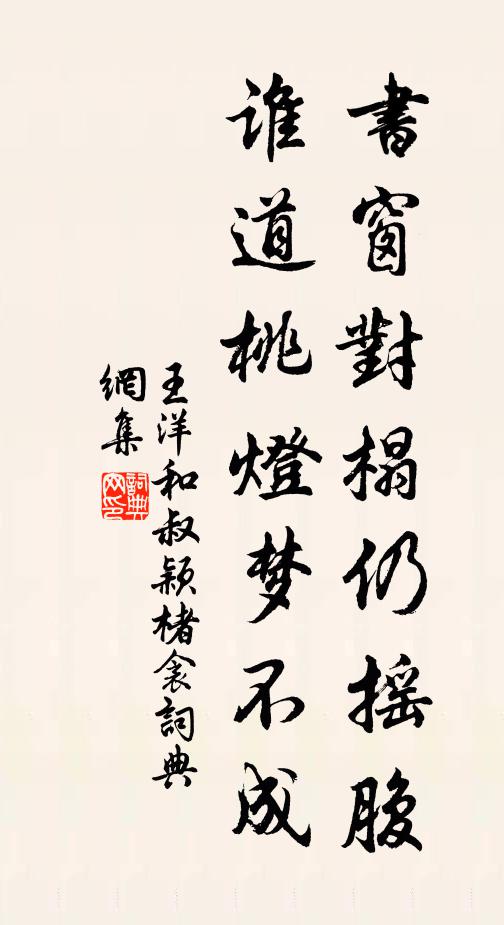 書窗對榻仍摇腹
谁道桃燈梦不成
王洋和叔颖楮衾詞典
網集
詞典
网印